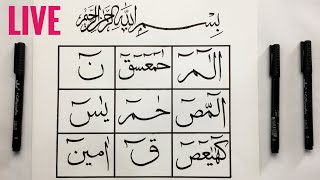 LIVE
بِسْمِ اللهِ الرَّحْمٰنِ الرَّحِيْمِ
الٓمٓ حٰمٓعٓسٓقٓ نٓ
الٓمّٓصٓ حٰمٓ يٰسٓ
كٓهٰيٰعٓصٓ قٓ اٰمين